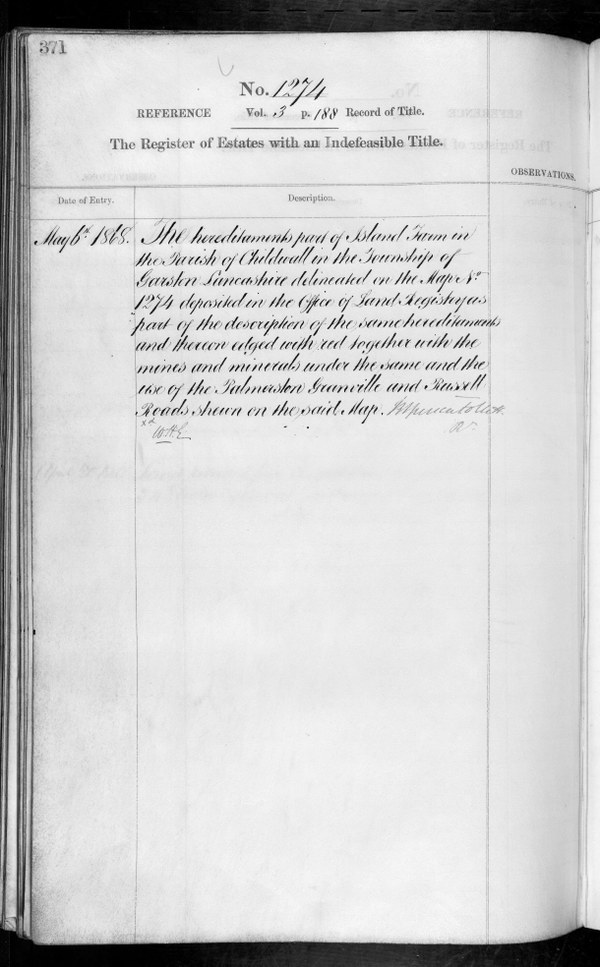 371
No. 1274
REFERENCE Vol. 3 p. 188 Record of Title.
The Register of Estates with an Indefeasible Title.
OBSERVATIONS.
Date of Entry. Description.
May 6th 1868. The hereditaments part of Island Farm in
the Parish of Childwall in the Township of
Garston Lancashire delineated on the Map No.
1274 deposited in the Office of Land Registry as
part of the description of the same hereditaments
and thereon edged with red together with the
mines and minerals under the same and the
use of the Palmerston Granville and Russell
Roads shewn on the said Map.
W.H.E.